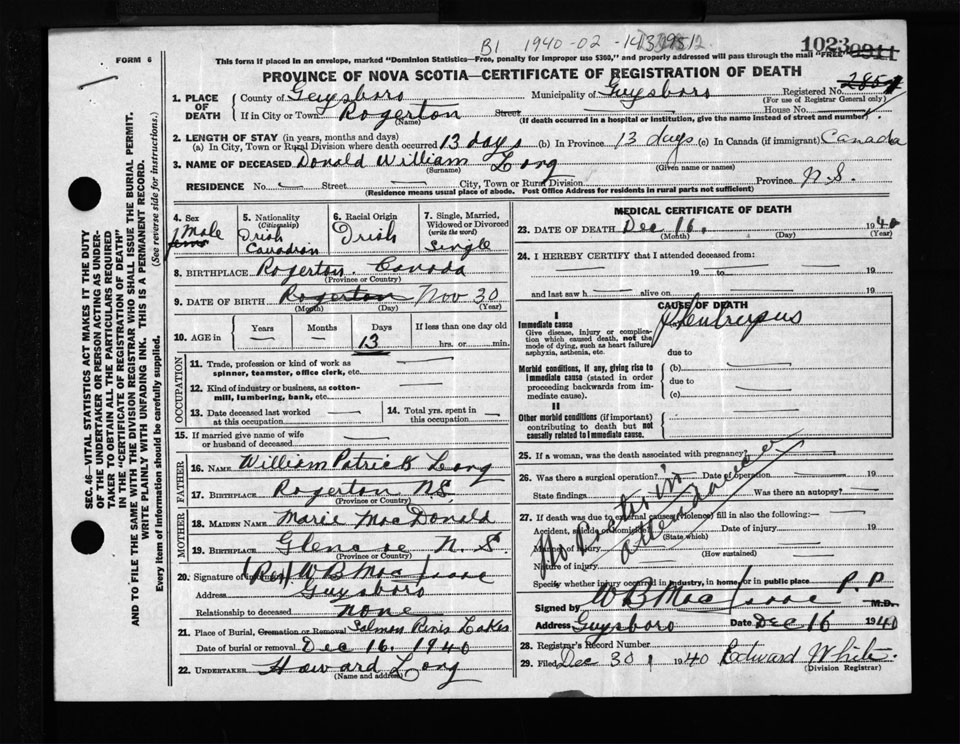 B1 1940-02-
1023
FORM 6
This form if placed in an envelope, marked "Dominion Statistics—Free, penalty for improper use $300," and properly addressed will pass through the mail "FREE"
PROVINCE OF NOVA SCOTIA—CERTIFICATE OF REGISTRATION OF DEATH
Registered No.
(For use of Registrar General only)
1. PLACE OF DEATH
County of Geysboro Municipality of Guysboro
If in City or Town Rogerton Street House No.
(Name) (If death occurred in a hospital or institution, give the name instead of street and number)
2. LENGTH OF STAY (in years, months and days)
(a) In City, Town or Rural Division where death occurred 13 days (b) In Province 13 days (c) In Canada (if immigrant) Canada
3. NAME OF DECEASED Donald William Long
(Surname) (Given name or names)
RESIDENCE No. — Street — City, Town or Rural Division Province N.S.
(Residence means usual place of abode. Post Office Address for residents in rural parts not sufficient)
4. Sex Male
5. Nationality (Citizenship) Irish Canadian
6. Racial Origin Irish
7. Single, Married, Widowed or Divorced (write the word) Single
8. BIRTHPLACE Rogerton. Canada
(Province or Country)
9. DATE OF BIRTH Rogerton Nov 30
(Month) (Day) (Year)
10. AGE in Years — Months — Days 13 If less than one day old hrs. or min.
OCCUPATION
11. Trade, profession or kind of work as spinner, teamster, office clerk, etc. —
12. Kind of industry or business, as cotton-mill, lumbering, bank, etc. —
13. Date deceased last worked at this occupation —
14. Total yrs. spent in this occupation —
15. If married give name of wife or husband of deceased —
FATHER
16. NAME William Patrick Long
17. BIRTHPLACE Rogerton N.S.
(Province or Country)
MOTHER
18. MAIDEN NAME Marie MacDonald
19. BIRTHPLACE Glencoe N.S.
(Province or Country)
20. Signature of informant (Rev) W B MacIsaac
Address Guysboro
Relationship to deceased none
21. Place of Burial, Cremation or Removal Salmon Lakes
Date of burial or removal Dec 16. 1940
22. UNDERTAKER Howard Long
(Name and address)
MEDICAL CERTIFICATE OF DEATH
23. DATE OF DEATH Dec 16. 1940
(Month) (Day) (Year)
24. I HEREBY CERTIFY that I attended deceased from:
— 19 to — 19
and last saw h — alive on — 19
CAUSE OF DEATH
I
Immediate cause
Give disease, injury or complication which caused death, not the mode of dying, such as heart failure, asphyxia, asthenia, etc.
due to
Morbid conditions, if any, giving rise to immediate cause (stated in order proceeding backwards from immediate cause).
(b) —
due to
(c) —
II
Other morbid conditions (if important) contributing to death but not causally related to immediate cause.
25. If a woman, was the death associated with pregnancy?
26. Was there a surgical operation? — Date of operation 19
State findings Was there an autopsy? —
27. If death was due to external causes (violence) fill in also the following: —
Accident, suicide or homicide? Date of injury 19
(State which)
Manner of injury
(How sustained)
Nature of injury
Specify whether injury occurred in industry, in home, or in public place
No Doctor in attendance
Signed by W B MacIsaac P.P. M.D.
Address Guysboro Date Dec 16 1940
28. Registrar's Record Number
29. Filed Dec 30, 1940 Edward White.
(Division Registrar)
SEC. 46—VITAL STATISTICS ACT MAKES IT THE DUTY
OF THE UNDERTAKER OR PERSON ACTING AS UNDER-
TAKER TO OBTAIN ALL THE PARTICULARS REQUIRED
IN THE "CERTIFICATE OF REGISTRATION OF DEATH"
AND TO FILE THE SAME WITH THE DIVISION REGISTRAR WHO SHALL ISSUE THE BURIAL PERMIT.
WRITE PLAINLY WITH UNFADING INK. THIS IS A PERMANENT RECORD.
Every item of information should be carefully supplied. (See reverse side for instructions.)